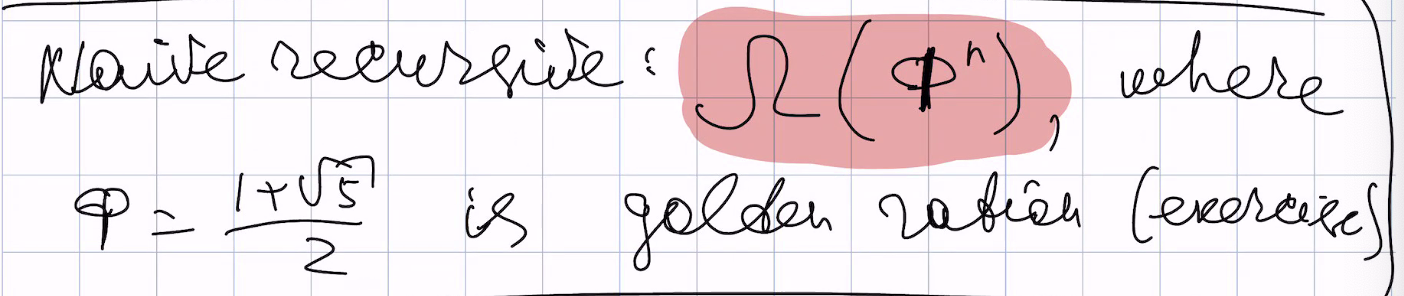 Naive recursive: Ω(φⁿ), where
φ = (1+√5)/2 is golden ration (exercise)